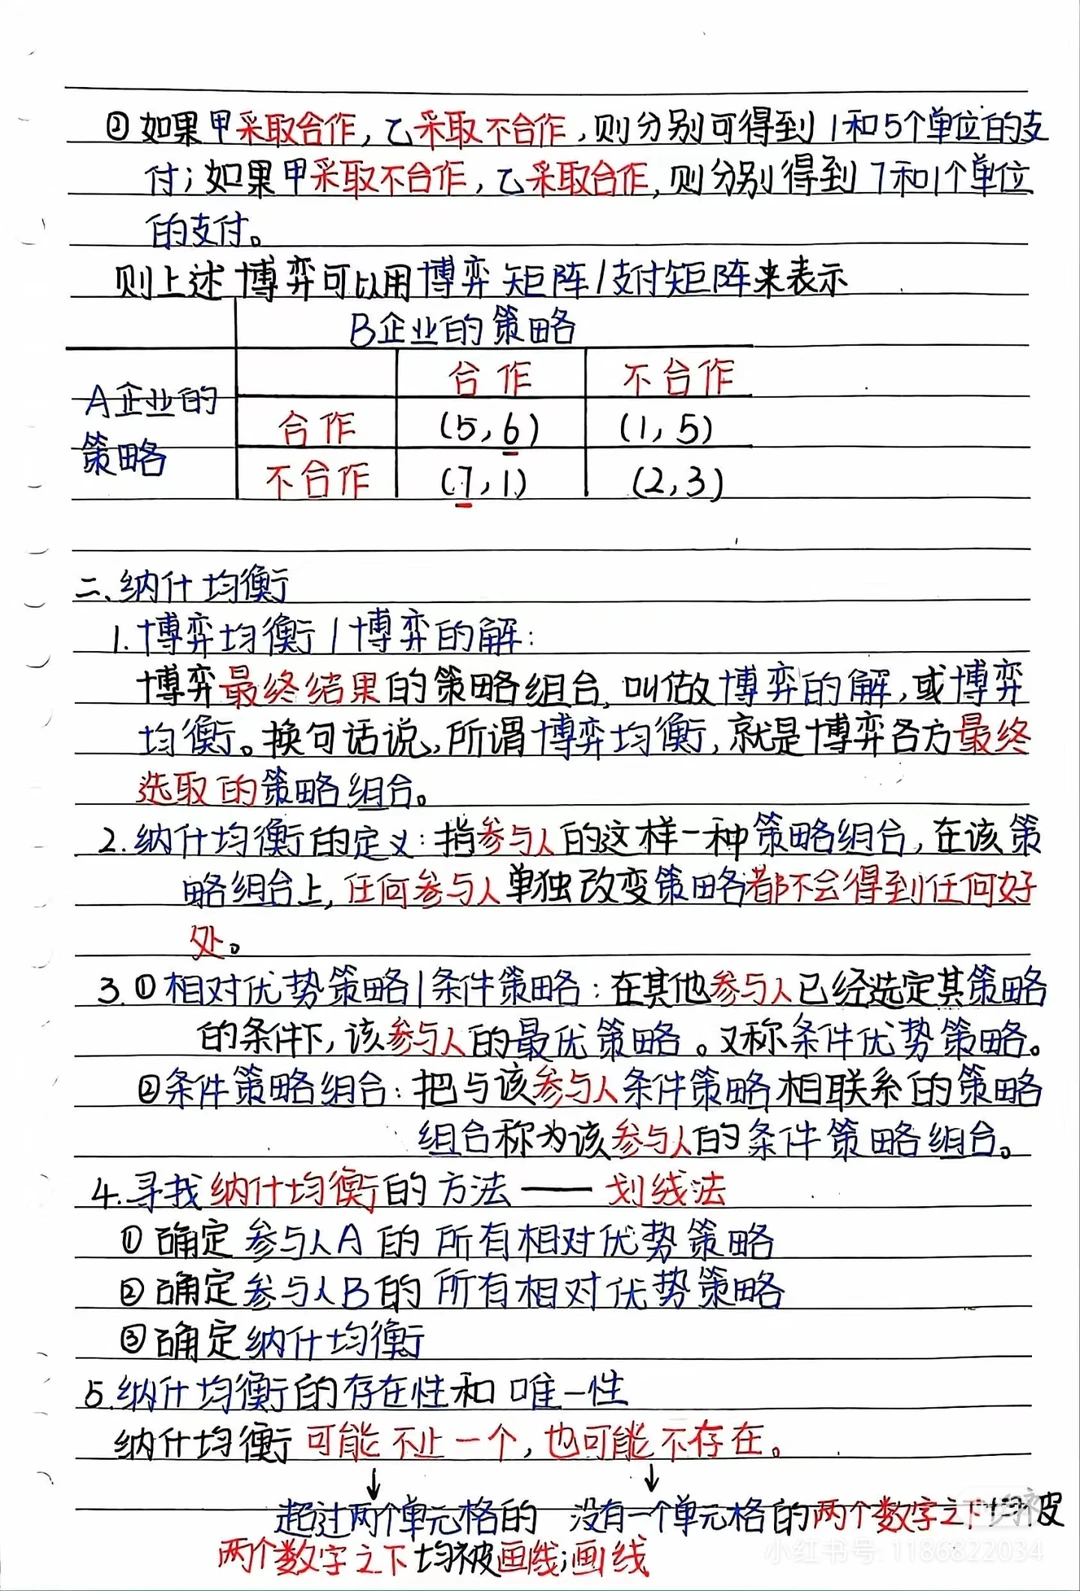 ②如果甲采取合作,乙采取不合作,则分别可得到1和5个单位的支
付;如果甲采取不合作,乙采取合作,则分别得到7和1个单位
的支付。
则上述博弈可以用博弈矩阵/支付矩阵来表示
B企业的策略
A企业的策略
合作 不合作
合作 (5,6) (1,5)
不合作 (7,1) (2,3)
二、纳什均衡
1.博弈均衡/博弈的解:
博弈最终结果的策略组合,叫做博弈的解,或博弈
均衡。换句话说,所谓博弈均衡,就是博弈各方最终
选取的策略组合。
2.纳什均衡的定义:指参与人的这样一种策略组合,在该策
略组合上,任何参与人单独改变策略都不会得到任何好
处。
3.①相对优势策略/条件策略:在其他参与人已经选定其策略
的条件下,该参与人的最优策略。又称条件优势策略。
②条件策略组合:把与该参与人条件策略相联系的策略
组合称为该参与人的条件策略组合。
4.寻找纳什均衡的方法——划线法
①确定参与人A的所有相对优势策略
②确定参与人B的所有相对优势策略
③确定纳什均衡
5.纳什均衡的存在性和唯一性
纳什均衡可能不止一个,也可能不存在。
↓ ↓
超过两个单元格的 没有一个单元格的两个数字之下均被
两个数字之下均被画线;画线
小红书号: 1186822034